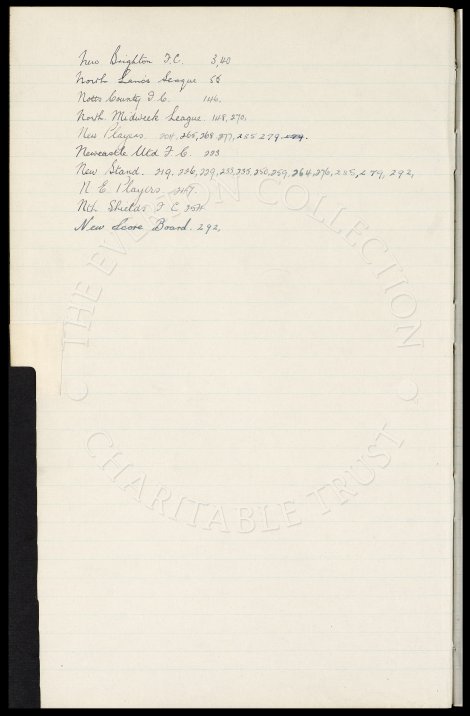 New Brighton F.C. 3,40
North Lancs League 56
Notts County F.C. 146.
North. Midweek League. 148,270.
New Players. 204, 265,268,277, 285 279.
Newcastle Utd F.C. 223
New Stand. 219, 226, 229, 233,235, 250,259, 264,276, 285, 279, 292,
N. E. Players. 247.
Nth Shields F.C. 254
New Score Board. 292,
THE EVERTON COLLECTION
CHARITABLE TRUST